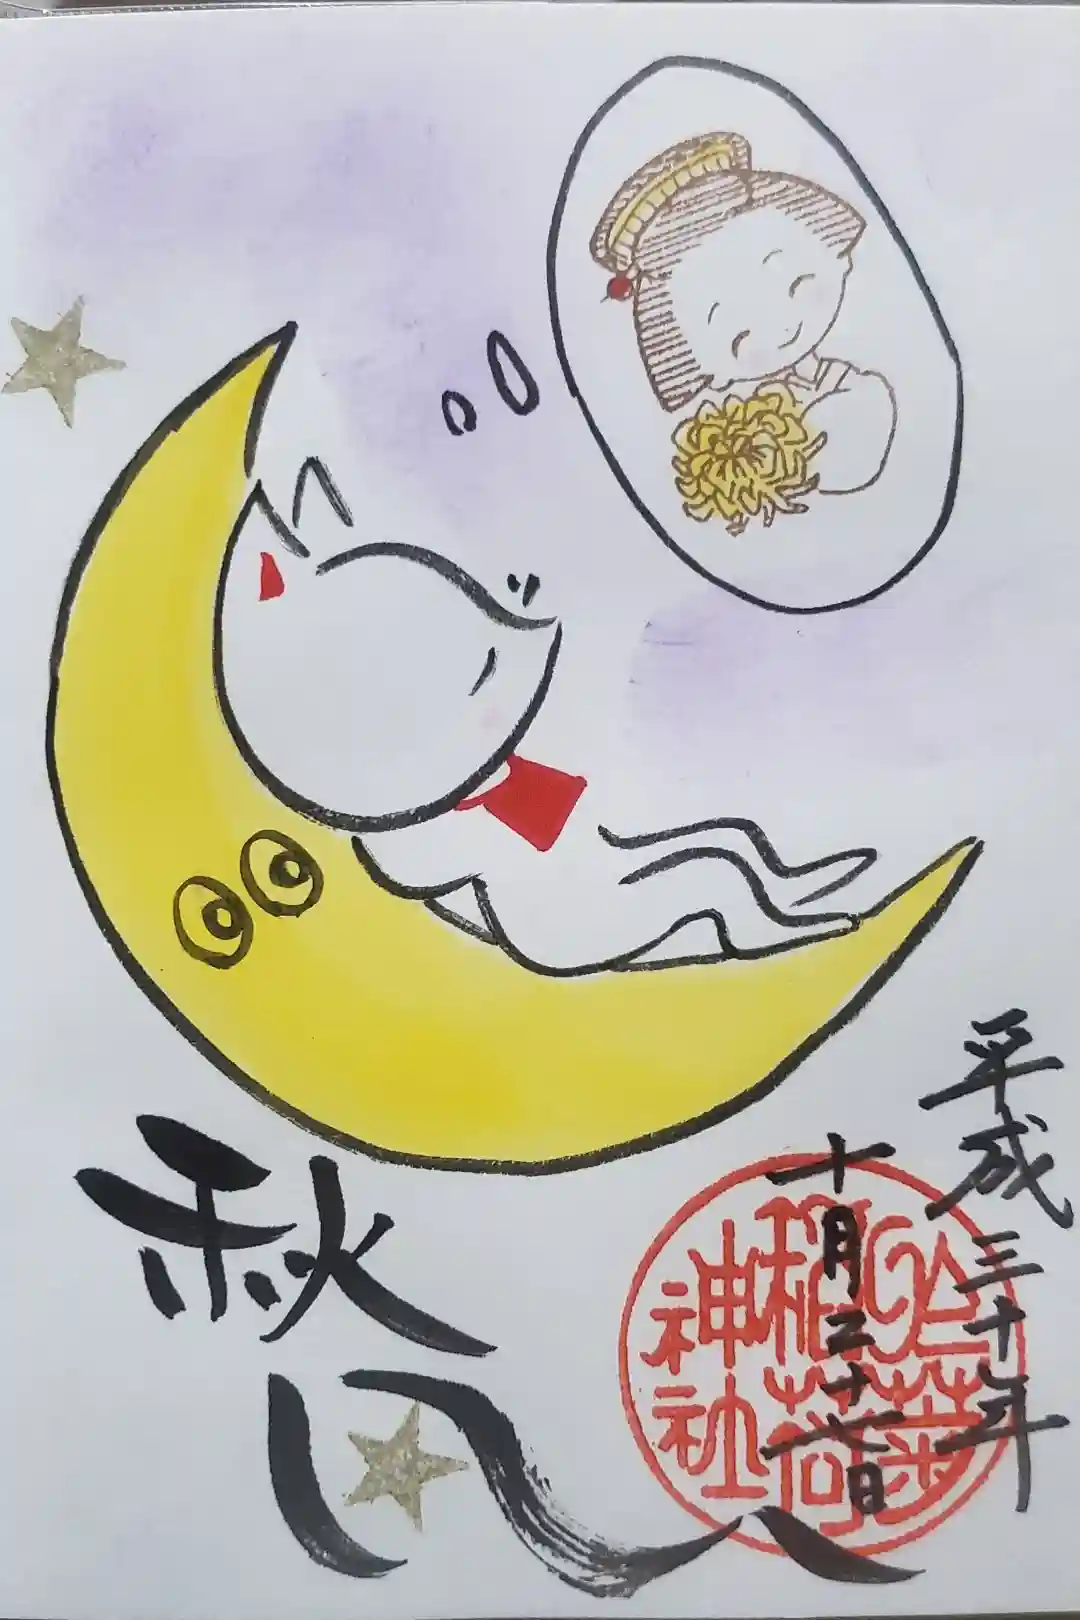 平成三十年
十月二十七日
秋
稲荷
神社